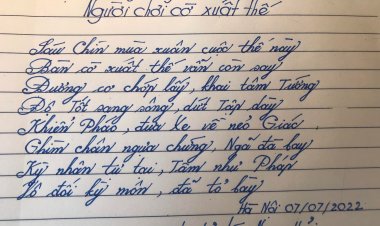 Người chơi cờ xuất thế
Sáu chín mùa xuân cuộc thế này
Bàn cờ xuất thế vẫn còn say
Đường cơ chớp lấy, khai tâm Tướng
Độ Tốt sang sông, dứt Tập dày
Khiển Pháo, đưa Xe về nẻo Giác,
Ghìm chân ngựa chứng, Ngã đã bay
Kỳ nhân tự tại, Tâm như Pháp
Vô đối kỳ môn, đã tỏ bày
Hà Nội 07/07/2022